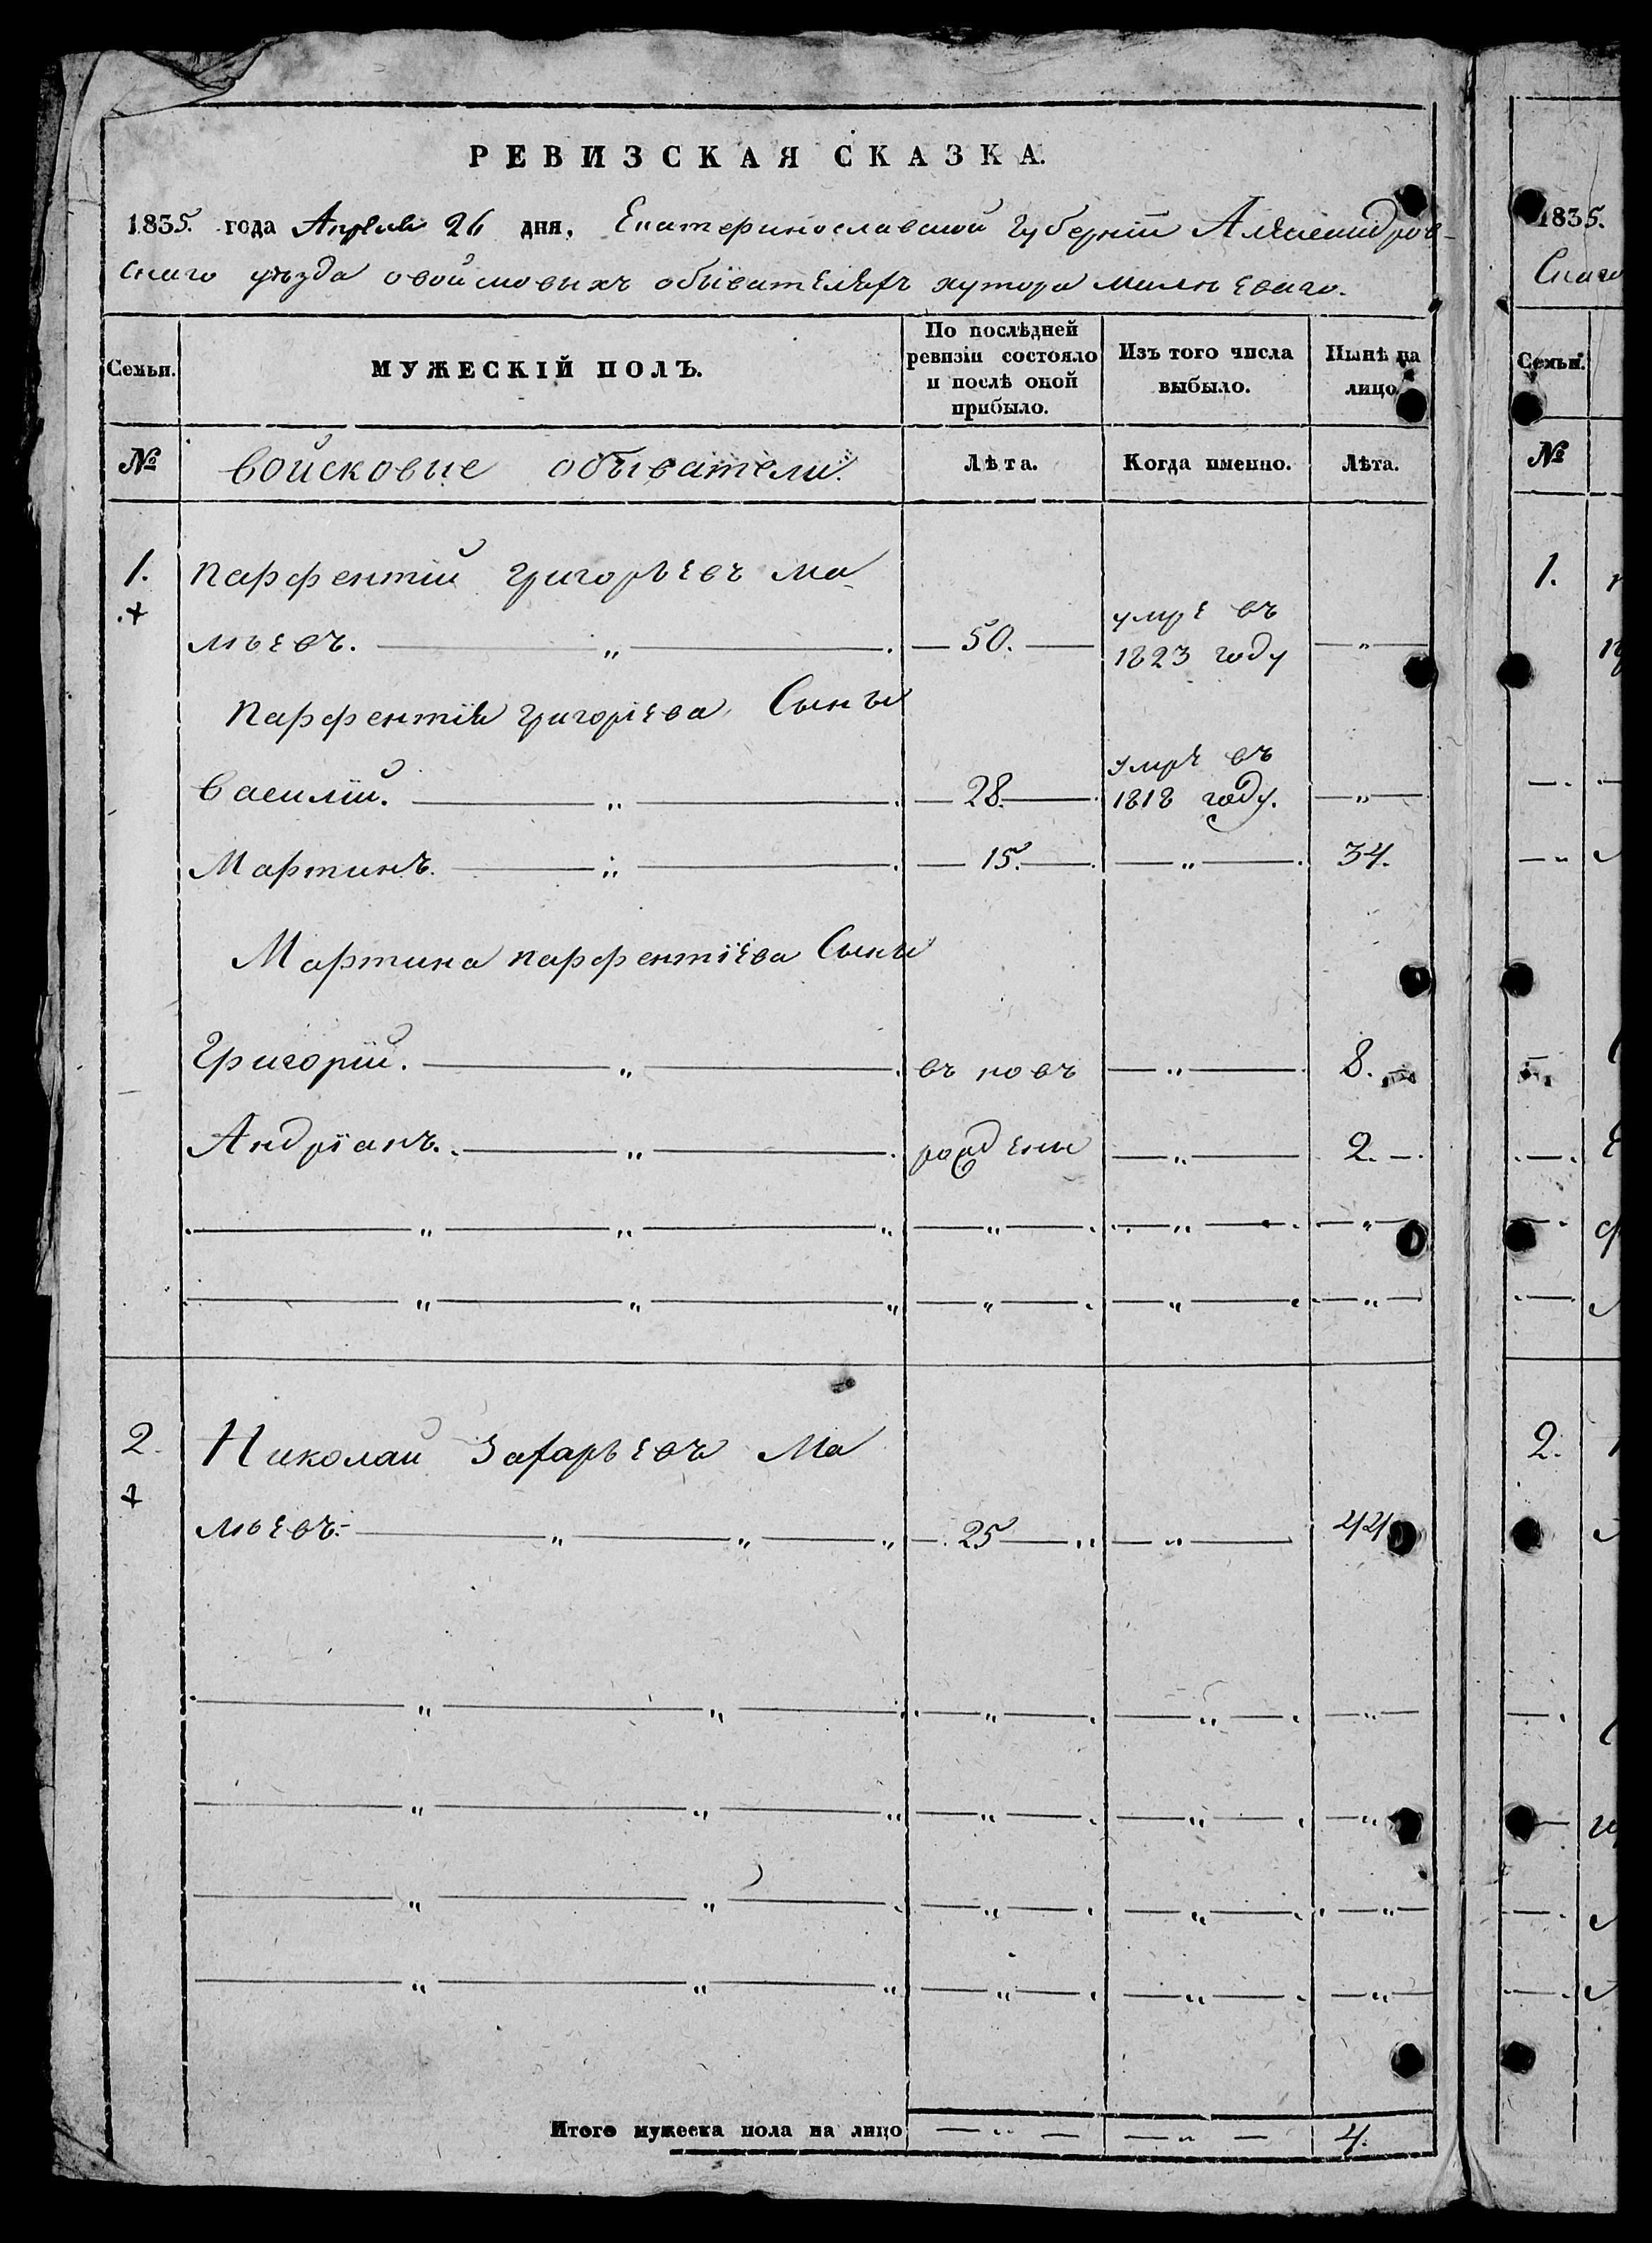 РЕВИЗСКАЯ СКАЗКА.
1835. года Апреля 26 дня, Екатеринославской Губерніи Александров-
скаго уѣзда овойсковыхъ обывателяхъ хутора
Семьи. МУЖЕСКІЙ ПОЛЪ. По послѣдней ревизіи состояло и послѣ оной прибыло. Изъ того числа выбыло. Нынѣ на лицо.
№ Войсковые обыватели. Лѣта. Когда именно. Лѣта.
1. Парфентій Григорьевъ Ма
мьевъ. 50. умре въ 1823 году
Парфентія Григоріева Сыны
Василій. 28. умре въ 1818 году.
Мартинъ. 15. 34.
Мартина парфентіева Сыны
Григорій. въ новъ 8.
Андріанъ. рождены 2.
2. Николай Захарьевъ Ма
мьевъ. 25 44
Итого мужеска пола на лицо 4.
1835.
Скаго
Семьи.
№
1.
2.